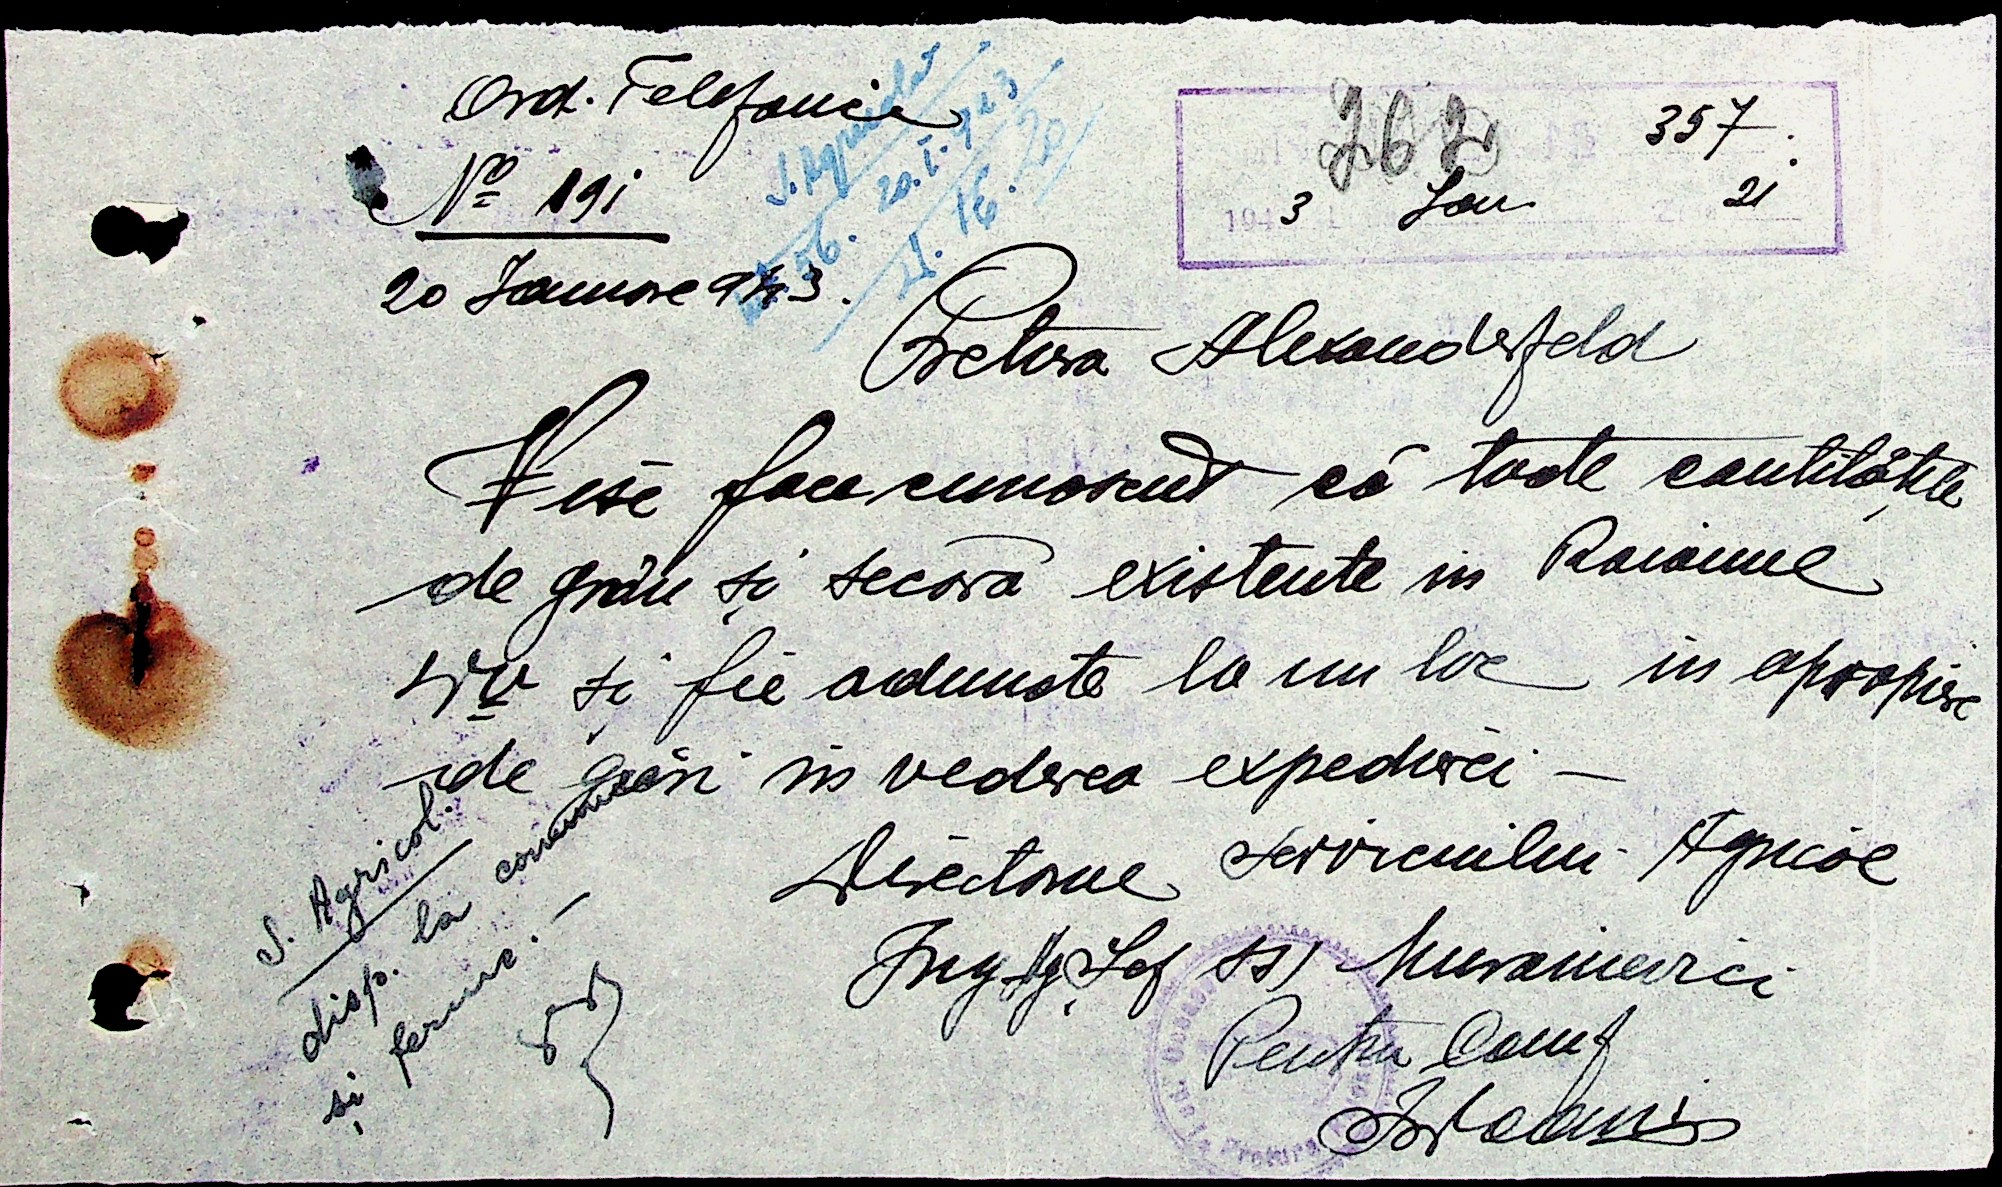 Ord. Telefonic
No 191
20 Ianuare 943.
S. Agricolă
20.I.943
N. 56.
357.
262
1943 Ian. 21
Pretura Alexanderfeld
Vise face cunoscut că toate cantitățile
de grâu și secară existente in Raioanele
și fie adunate la un loc in apropiere
de gări in vederea expedierei —
Directorul Serviciului Agricol
Ing Ag Șef ss) Muraniewici
Pentru Conf
S. Agricol.
disp. la comune
și ferme. —
Pretura